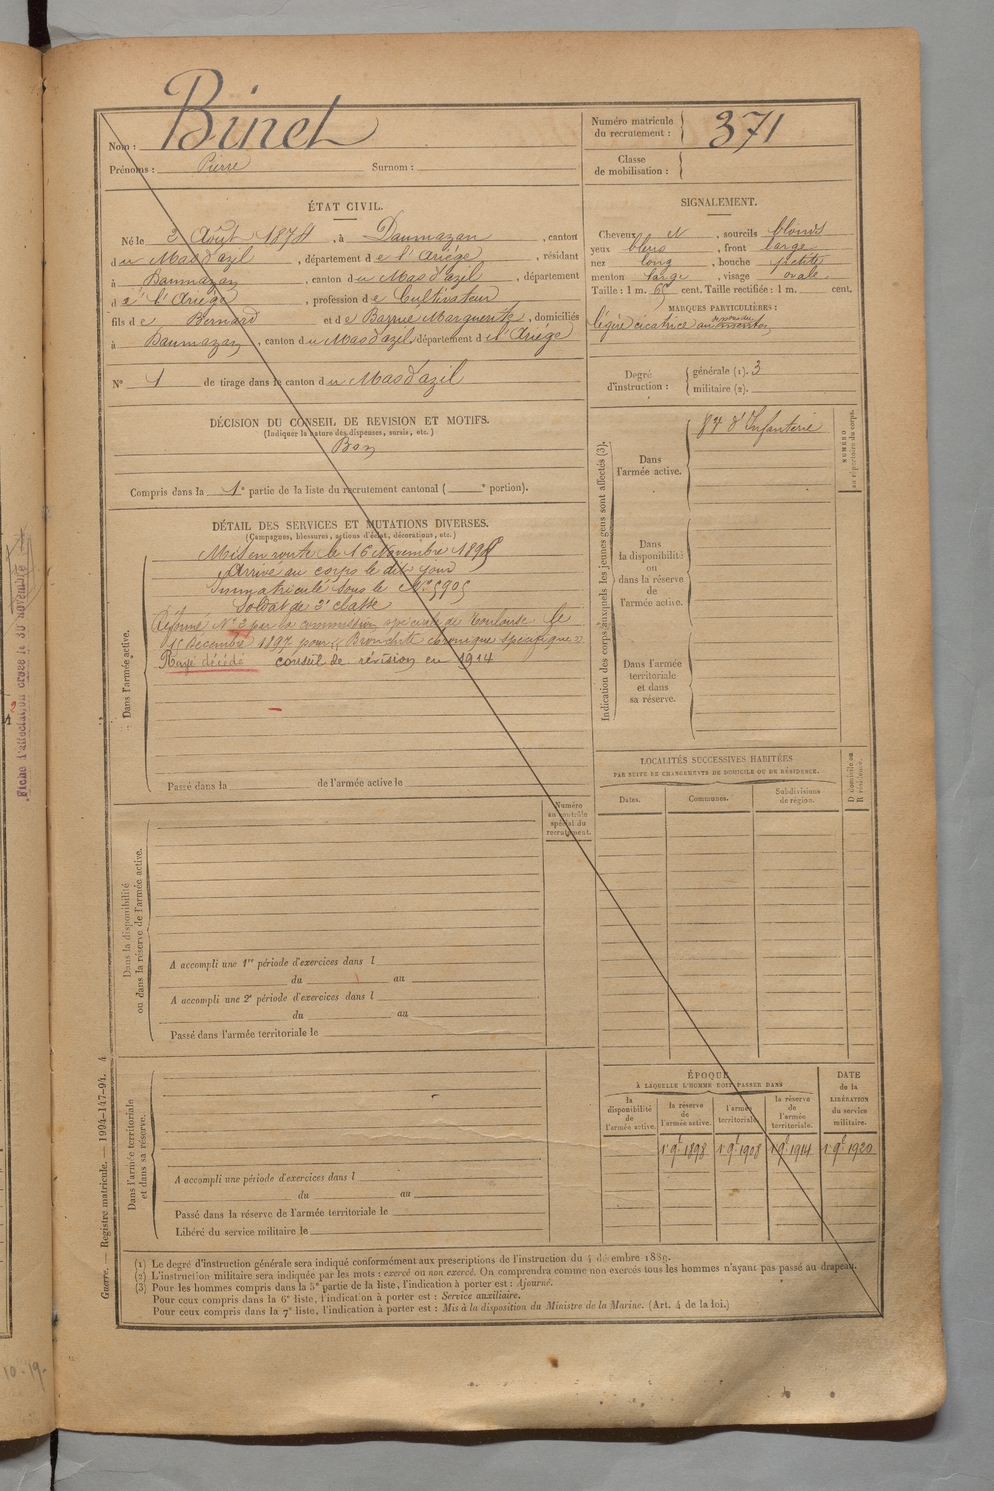 Binet
Nom :
Prénoms : Pierre Surnom :
Numéro matricule du recrutement : 371
Classe de mobilisation :
ÉTAT CIVIL.
Né le 3 Août 1874, à Daumazan, canton
du Mas d'azil, département de l'Ariège, résidant
à Daumazan, canton du Mas d'azil, département
d e l'Ariège, profession de Cultivateur
fils de Bernard et de Barrue Marguerite, domiciliés
à Daumazan, canton du Mas d'azil, département de l'Ariège
N° 1 de tirage dans le canton du Mas d'azil
SIGNALEMENT.
Cheveux et, sourcils blonds
yeux bleus, front large
nez long, bouche petite
menton large, visage ovale.
Taille : 1 m. 65 cent. Taille rectifiée : 1 m. cent.
MARQUES PARTICULIÈRES :
légère cicatrice au menton
Degré d'instruction : générale (1). 3
militaire (2).
DÉCISION DU CONSEIL DE REVISION ET MOTIFS.
(Indiquer la nature des dispenses, sursis, etc.)
Bon
Compris dans la 1e partie de la liste du recrutement cantonal ( e portion).
Indication des corps auxquels les jeunes gens sont affectés (3).
NUMÉRO au répertoire du corps.
Dans l'armée active.
d'Infanterie
Dans la disponibilité ou dans la réserve de l'armée active.
Dans l'armée territoriale et dans sa réserve.
DÉTAIL DES SERVICES ET MUTATIONS DIVERSES.
(Campagnes, blessures, actions d'éclat, décorations, etc.)
Dans l'armée active.
Mis en route le 16 Novembre 189
Arrivé au corps le dit jour
Immatriculé sous le N° 5905
Soldat de 2e classe
Réformé N° 2 par la commission spéciale de Toulouse le
15 Décembre 1897 pour « Bronchite chronique spécifique »
Rayé décédé conseil de révision en 1914
Passé dans la de l'armée active le
LOCALITÉS SUCCESSIVES HABITÉES
PAR SUITE DE CHANGEMENTS DE DOMICILE OU DE RÉSIDENCE.
Dates. Communes. Subdivisions de région. D. domicile ou R. résidence.
Numéro au contrôle spécial du recrutement.
Dans la disponibilité ou dans la réserve de l'armée active.
A accompli une 1re période d'exercices dans l
du au
A accompli une 2e période d'exercices dans l
du au
Passé dans l'armée territoriale le
ÉPOQUE
À LAQUELLE L'HOMME DOIT PASSER DANS
DATE de la LIBÉRATION du service militaire.
la disponibilité de l'armée active.
la réserve de l'armée active.
l'armée territoriale.
la réserve de l'armée territoriale.
1 9e 1898 1 9e 1908 1 9e 1914 1 9e 1920
Dans l'armée territoriale et dans sa réserve.
A accompli une période d'exercices dans l
du au
Passé dans la réserve de l'armée territoriale le
Libéré du service militaire le
(1) Le degré d'instruction générale sera indiqué conformément aux prescriptions de l'instruction du 4 décembre 1889.
(2) L'instruction militaire sera indiquée par les mots : exercé ou non exercé. On comprendra comme non exercés tous les hommes n'ayant pas passé au drapeau.
(3) Pour les hommes compris dans la 5e partie de la liste, l'indication à porter est : Ajourné.
Pour ceux compris dans la 6e liste, l'indication à porter est : Service auxiliaire.
Pour ceux compris dans la 7e liste, l'indication à porter est : Mis à la disposition du Ministre de la Marine. (Art. 4 de la loi.)
Guerre. — Registre matricule. — 1994-147-94. 4
Fiche d'affectation créée le 30 novembre
10-19-